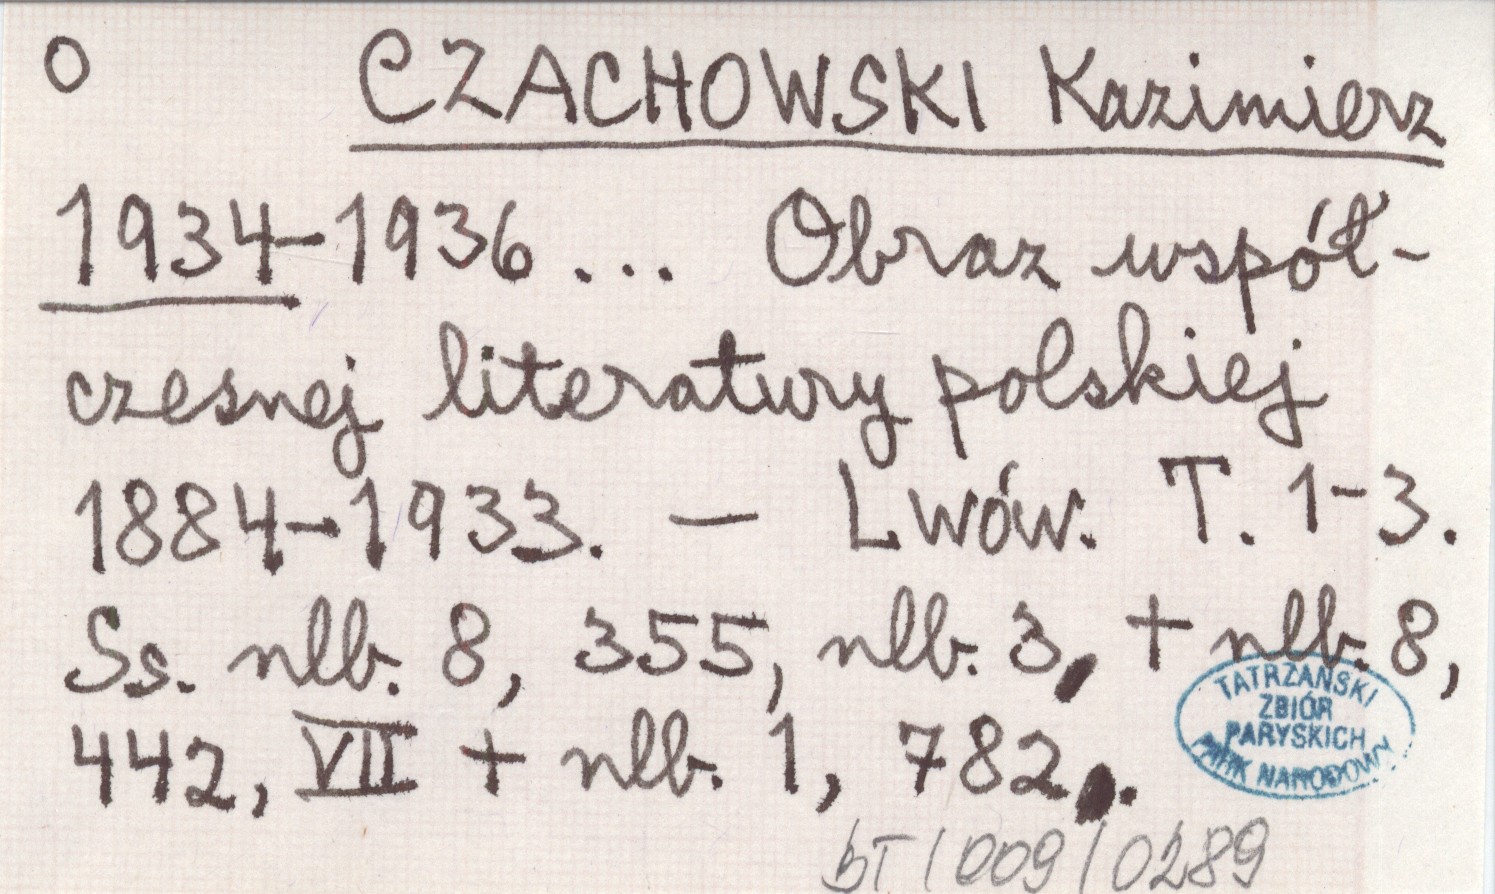 O CZACHOWSKI Kazimierz
1934-1936 ... Obraz współ-
czesnej literatury polskiej
1884-1933. — Lwów. T. 1-3.
Ss. nlb. 8, 355, nlb. 3, + nlb. 8,
442, VII + nlb. 1, 782.
TATRZAŃSKI
ZBIÓR
PARYSKICH
PARK NARODOWY
bT/009/0289